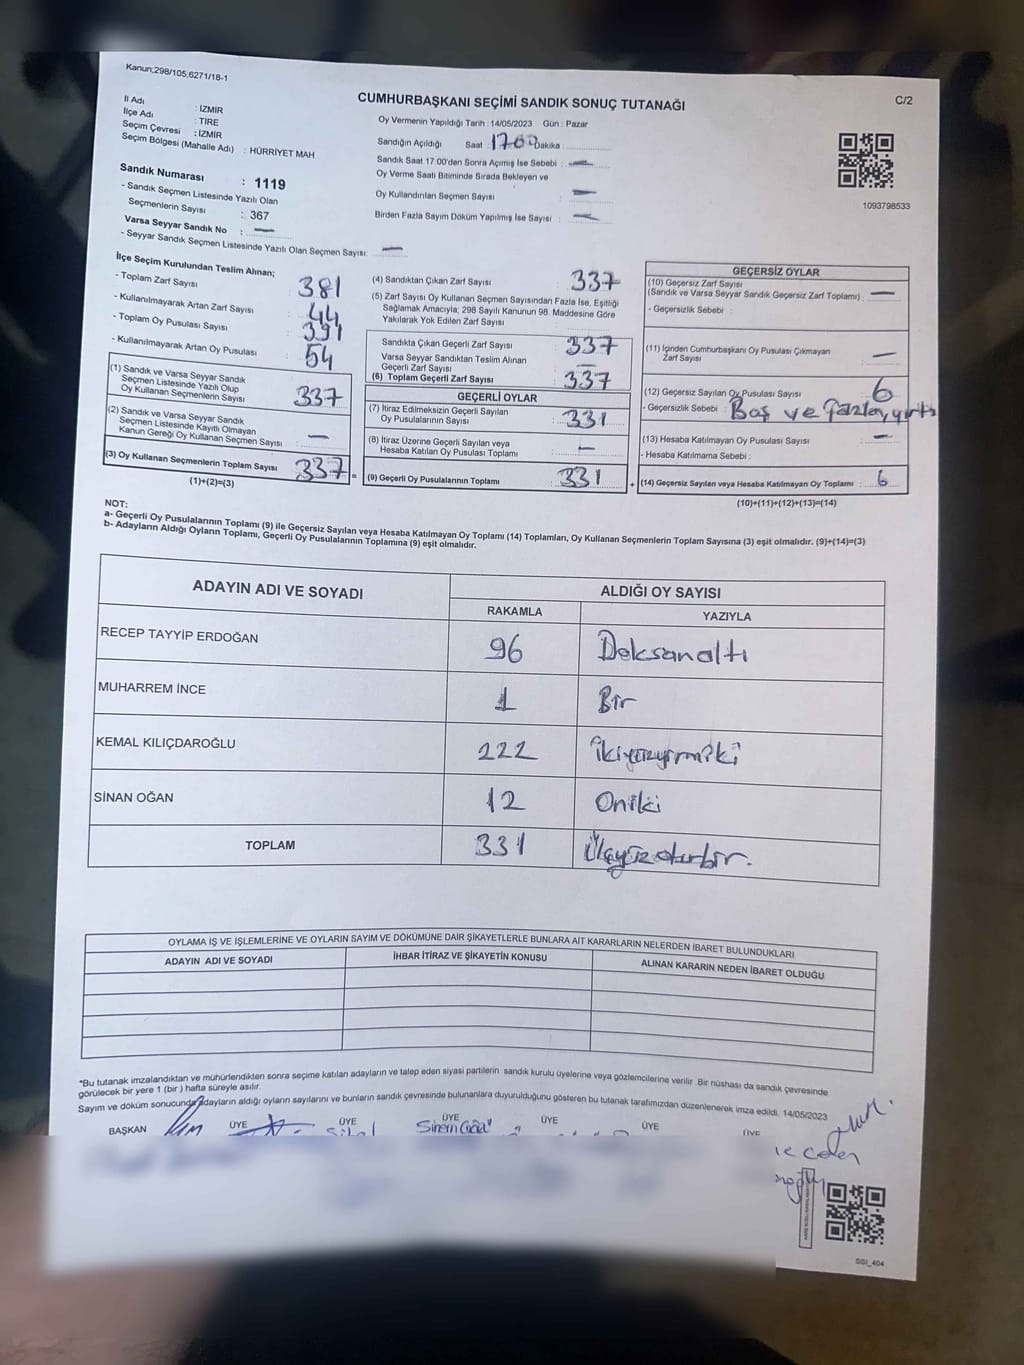 Kanun;298/105,6271/18-1
C/2
CUMHURBAŞKANI SEÇİMİ SANDIK SONUÇ TUTANAĞI
İl Adı : İZMİR
İlçe Adı : TİRE
Seçim Çevresi : İZMİR
Seçim Bölgesi (Mahalle Adı) : HÜRRİYET MAH
Sandık Numarası : 1119
- Sandık Seçmen Listesinde Yazılı Olan
Seçmenlerin Sayısı : 367
Varsa Seyyar Sandık No : —
- Seyyar Sandık Seçmen Listesinde Yazılı Olan Seçmen Sayısı: —
Oy Vermenin Yapıldığı Tarih : 14/05/2023 Gün : Pazar
Sandığın Açıldığı Saat : 17 00 Dakika :
Sandık Saat 17.00'den Sonra Açımış İse Sebebi : —
Oy Verme Saati Bitiminde Sırada Bekleyen ve
Oy Kullandırılan Seçmen Sayısı : —
Birden Fazla Sayım Döküm Yapılmış İse Sayısı : —
1093798533
İlçe Seçim Kurulundan Teslim Alınan;
- Toplam Zarf Sayısı : 381
- Kullanılmayarak Artan Zarf Sayısı : 44
- Toplam Oy Pusulası Sayısı : 391
- Kullanılmayarak Artan Oy Pusulası : 54
(1) Sandık ve Varsa Seyyar Sandık
Seçmen Listesinde Yazılı Olup
Oy Kullanan Seçmenlerin Sayısı : 337
(2) Sandık ve Varsa Seyyar Sandık
Seçmen Listesinde Kayıtlı Olmayan
Kanun Gereği Oy Kullanan Seçmen Sayısı : —
(3) Oy Kullanan Seçmenlerin Toplam Sayısı : 337 =
(1)+(2)=(3)
(4) Sandıktan Çıkan Zarf Sayısı : 337
(5) Zarf Sayısı Oy Kullanan Seçmen Sayısından Fazla İse, Eşitliği
Sağlamak Amacıyla; 298 Sayılı Kanunun 98. Maddesine Göre
Yakılarak Yok Edilen Zarf Sayısı :
Sandıkta Çıkan Geçerli Zarf Sayısı : 337
Varsa Seyyar Sandıktan Teslim Alınan
Geçerli Zarf Sayısı : —
(6) Toplam Geçerli Zarf Sayısı : 337
GEÇERLİ OYLAR
(7) İtiraz Edilmeksizin Geçerli Sayılan
Oy Pusulalarının Sayısı : 331
(8) İtiraz Üzerine Geçerli Sayılan veya
Hesaba Katılan Oy Pusulası Toplamı : —
(9) Geçerli Oy Pusulalarının Toplamı : 331 +
GEÇERSİZ OYLAR
(10) Geçersiz Zarf Sayısı
(Sandık ve Varsa Seyyar Sandık Geçersiz Zarf Toplamı) : —
- Geçersizlik Sebebi :
(11) İçinden Cumhurbaşkanı Oy Pusulası Çıkmayan
Zarf Sayısı : —
(12) Geçersiz Sayılan Oy Pusulası Sayısı : 6
- Geçersizlik Sebebi : Boş ve fazla, yırtı
(13) Hesaba Katılmayan Oy Pusulası Sayısı : —
- Hesaba Katılmama Sebebi :
(14) Geçersiz Sayılan veya Hesaba Katılmayan Oy Toplamı : 6
(10)+(11)+(12)+(13)=(14)
NOT:
a- Geçerli Oy Pusulalarının Toplamı (9) ile Geçersiz Sayılan veya Hesaba Katılmayan Oy Toplamı (14) Toplamları, Oy Kullanan Seçmenlerin Toplam Sayısına (3) eşit olmalıdır. (9)+(14)=(3)
b- Adayların Aldığı Oyların Toplamı, Geçerli Oy Pusulalarının Toplamına (9) eşit olmalıdır.
ADAYIN ADI VE SOYADI ALDIĞI OY SAYISI
RAKAMLA YAZIYLA
RECEP TAYYİP ERDOĞAN 96 Doksanaltı
MUHARREM İNCE 1 Bir
KEMAL KILIÇDAROĞLU 222 İkiyüzyirmiki
SİNAN OĞAN 12 Oniki
TOPLAM 331 Üçyüzotuzbir.
OYLAMA İŞ VE İŞLEMLERİNE VE OYLARIN SAYIM VE DÖKÜMÜNE DAİR ŞİKAYETLERLE BUNLARA AİT KARARLARIN NELERDEN İBARET BULUNDUKLARI
ADAYIN ADI VE SOYADI İHBAR İTİRAZ VE ŞİKAYETİN KONUSU ALINAN KARARIN NEDEN İBARET OLDUĞU
*Bu tutanak imzalandıktan ve mühürlendikten sonra seçime katılan adayların ve talep eden siyasi partilerin sandık kurulu üyelerine veya gözlemcilerine verilir .Bir nüshası da sandık çevresinde
görülecek bir yere 1 (bir ) hafta süreyle asılır.
Sayım ve döküm sonucunda adayların aldığı oyların sayılarını ve bunların sandık çevresinde bulunanlara duyurulduğunu gösteren bu tutanak tarafımızdan düzenlenerek imza edildi. 14/05/2023
BAŞKAN ÜYE ÜYE ÜYE ÜYE ÜYE ÜYE
SGI_404